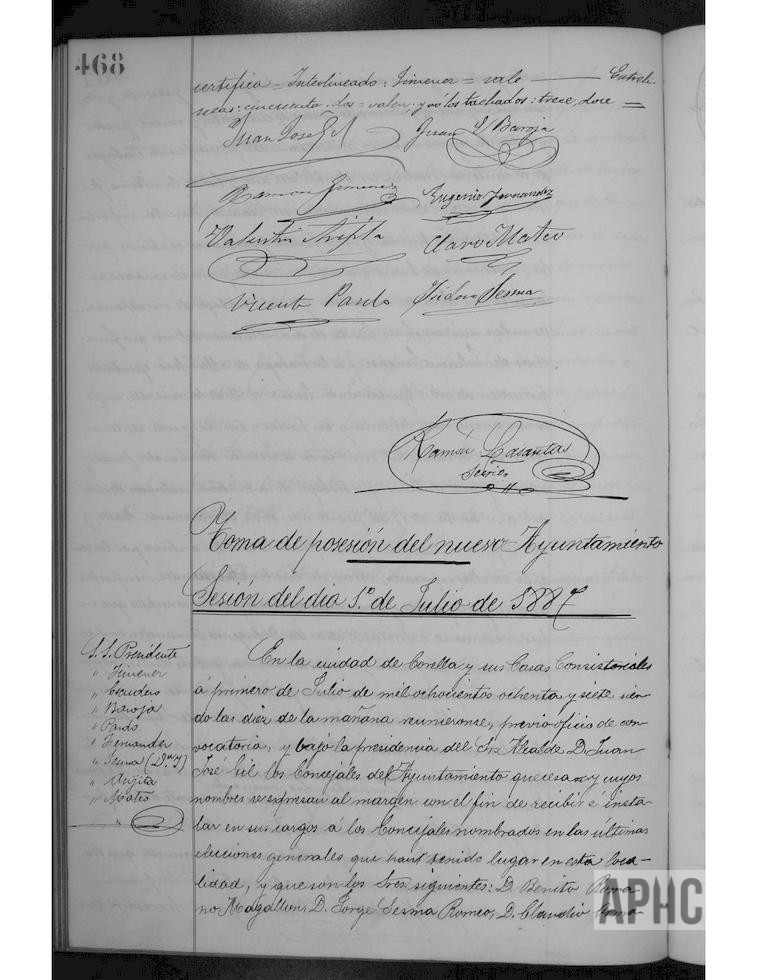 468
certifica = Interlineado: Jimenez = vale — Entreli-
neas: cincuenta, dos = valen y no los tachados: trece, doce =
Juan José Gil Juan D. Baroja
Ramon Jimenez Eugenio Fernandez
Valentin Arijita Claro Mateo
Vicente Pardo Isidoro Sesma
Ramón Lasantas
Secrio.
Toma de posesión del nuevo Ayuntamiento
Sesión del dia 1.º de Julio de 1887
S.S. Presidente
" Jimenez
" Escudero
" Baroja
" Pardo
" Fernandez
" Sesma (Dn. Y)
" Arijita
" Mateo
"
En la ciudad de Corella y sus Casas Consistoriales
á primero de Julio de mil ochocientos ochenta y siete sien-
do las diez de la mañana reunieronse, previo oficio de con-
vocatoria, y bajo la presidencia del Sr. Alcalde D. Juan
José Gil los Concejales del Ayuntamiento que cesa y cuyos
nombres se expresan al margen con el fin de recibir é insta-
lar en sus cargos á los Concejales nombrados en las últimas
elecciones generales que han tenido lugar en esta loca-
lidad, y que son los Sres. siguientes: D. Benito Roma-
no Magallon, D. Jorge Sesma Romeo, D. Claudio
APHC